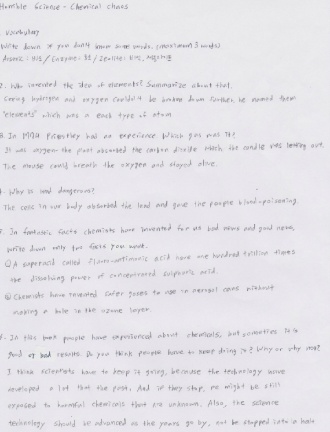 Horrible Science - Chemical chaos
1. Vocabulary
Write down if you don't know some words. (maximum 3 words)
Arsenic : 비소 / Enzyme : 효소 / Zeolite :
2. Who invented the idea of elements? Summarize about that.
Seeing hydrogen and oxygen couldn't be broken down further, he named them
"elements" which was a each type of atom
3. In 1774 Priestley had an experience. Which gas was it?
It was oxygen the plant absorbed the carbon dioxide which the candle was letting out.
The mouse could breath the oxygen and stayed alive.
4. Why is lead dangerous?
The cells in our body absorbed the lead and gave the people blood-poisoning.
5. In fantastic facts chemists have invented for us bad news and good news.
Write down only two facts you want.
① A superacid called fluoro-antimonic acid have one hundred trillion times
the dissolving power of concentrated sulphuric acid.
② Chemists have invented safer gases to use in aerosol cans without
making a hole in the ozone layer.
6. In this book people have experienced about chemicals, but sometimes it is
good or bad results. Do you think people have to keep doing it? Why or why not?
I think scientists have to keep it going, because the technology have
developed a lot that the past. And if they stop, we might be still
exposed to harmful chemicals that are unknown. Also, the science
technology should be advanced as the years go by, not be stopped into a hole